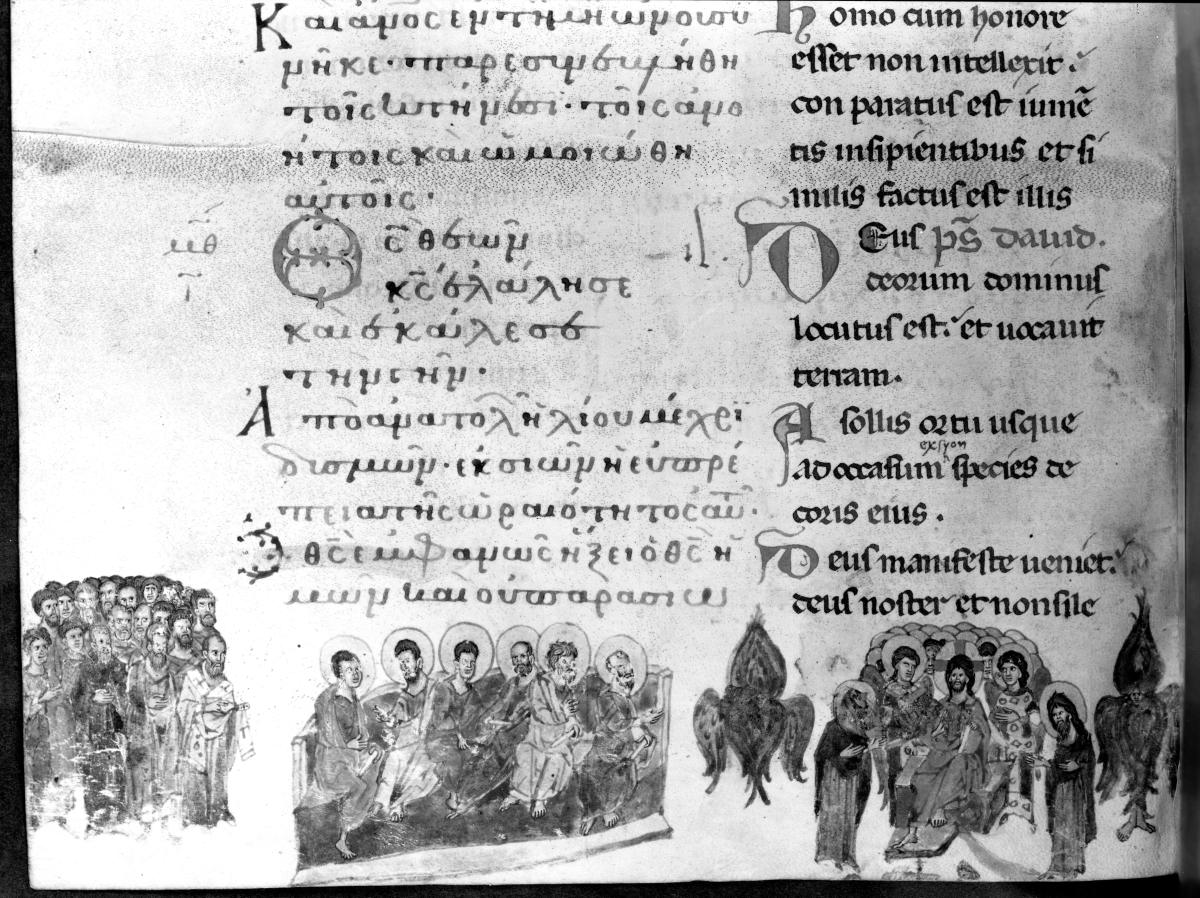 Καὶ ἄνος ἐν τημῆ ὢν οὐ συ
νῆκε· παρεσυνεβλήθη
τοῖς κτήνεσι· τοῖς ἀνο
ήτοις καὶ ὡμοιώθη
αὐτοῖς·
μθ
Θς θεῶν
κς ἐλάλησε
καὶ ἐκάλεσε
τὴν γῆν·
Ἀπὸ ἀνατολῆ ἡλίου μέχρι
δισμῶν· ἐκ σιὼν ἡ εὐπρέ
πεια τῆς ὡραιότητος αὐτ·
Ὁ θς ἐμφανῶς ἥξει ὁ θς ἡ
μῶν καὶ οὐ παρασιω
Homo cum honore
esset non intellexit.
conparatus est iumē
tis insipientibus et si
milis factus est illis
Deus ps dauid.
deorum dominus
locutus est. et uocauit
terram.
A sollis ortu usque
ex syon
ad occasum species de
coris eius.
Deus manifeste ueniet.
deus noster et non sile